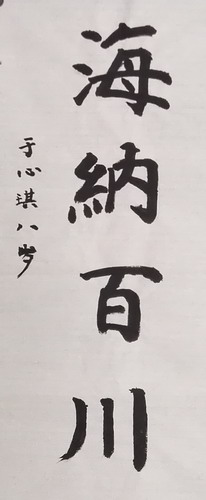 海納百川
于心琪八岁